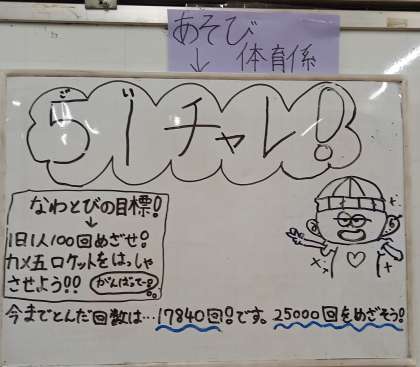 あそび
↓ 体育係
ご い
51チャレ!
なわとびの目標!
↓
1日1人100回めざせ!
カメ五ロケットをはっしゃ
させよう!! がんばってー!
今までとんだ回数は…17840回!です。25000回をめざそう!